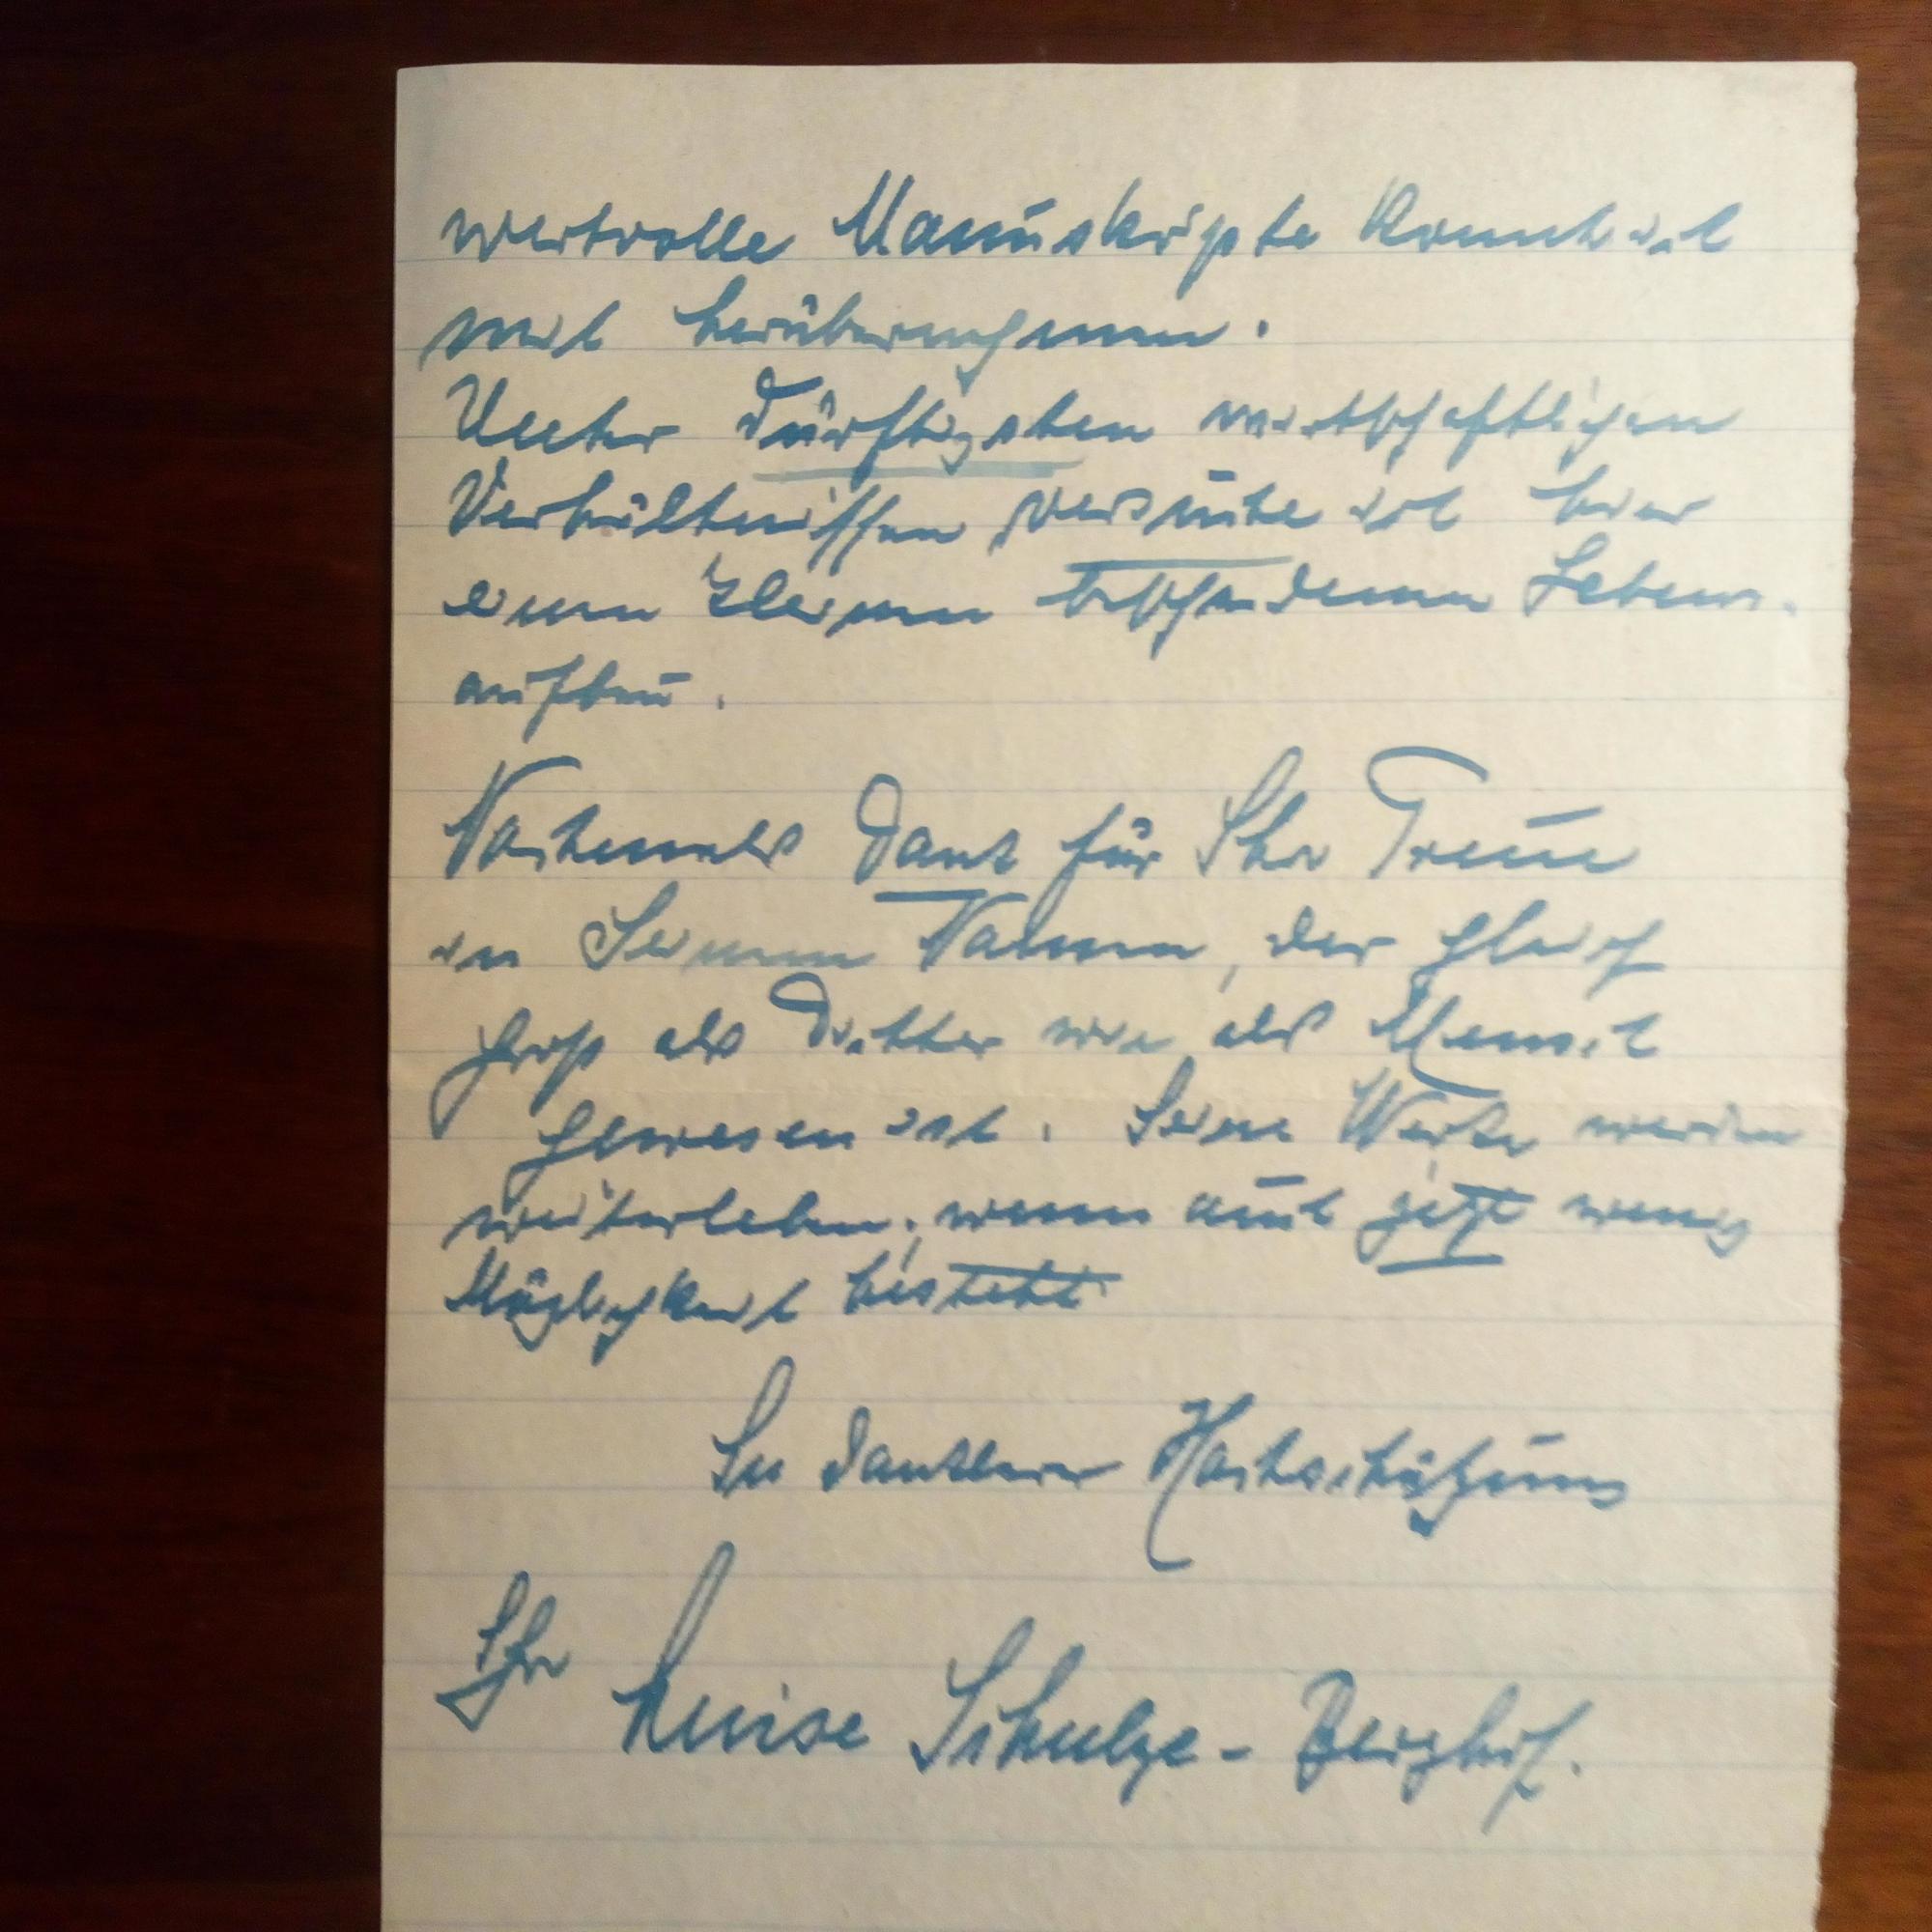 wertvolle Manuskripte konnte ich
mit herübernehmen.
Unter dürftigsten wirtschaftlichen
Verhältnissen versuche ich hier
einen kleinen bescheidenen Lebens-
aufbau.
Nochmals Dank für Ihre Treue
in Seinem Namen, der gleich
groß als Dichter wie als Mensch
gewesen ist. Seine Werke werden
weiterleben, wenn auch jetzt wenig
Möglichkeit besteht
In dankbarer Hochschätzung
Ihre Luise Schulze-Berghof.